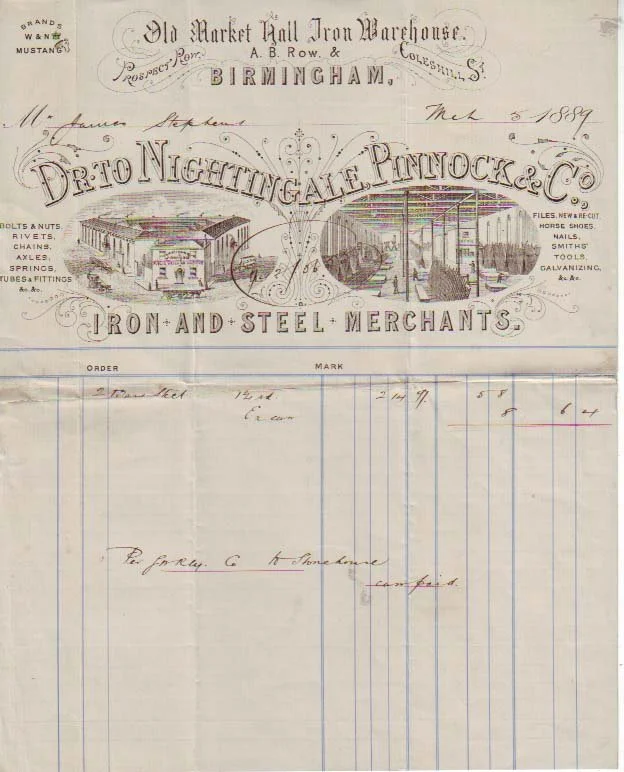 BRANDS
W & N
MUSTANG
Old Market Hall Iron Warehouse.
PROSPECT ROW,
A. B. Row. &
COLESHILL St.
BIRMINGHAM,
Mr James Stephens
Mch 5 1889
DR. TO NIGHTINGALE, PINNOCK & Co.,
BOLTS & NUTS,
RIVETS,
CHAINS,
AXLES,
SPRINGS,
TUBES & FITTINGS
&c. &c.
FILES, NEW & RE-CUT,
HORSE SHOES,
NAILS,
SMITHS'
TOOLS,
GALVANIZING,
&c. &c.
IRON AND STEEL MERCHANTS.
ORDER
MARK
2 Bars Steel
2 14
5 8
8
6 4
Per G W Rly. Co to Stonehouse
carr paid.